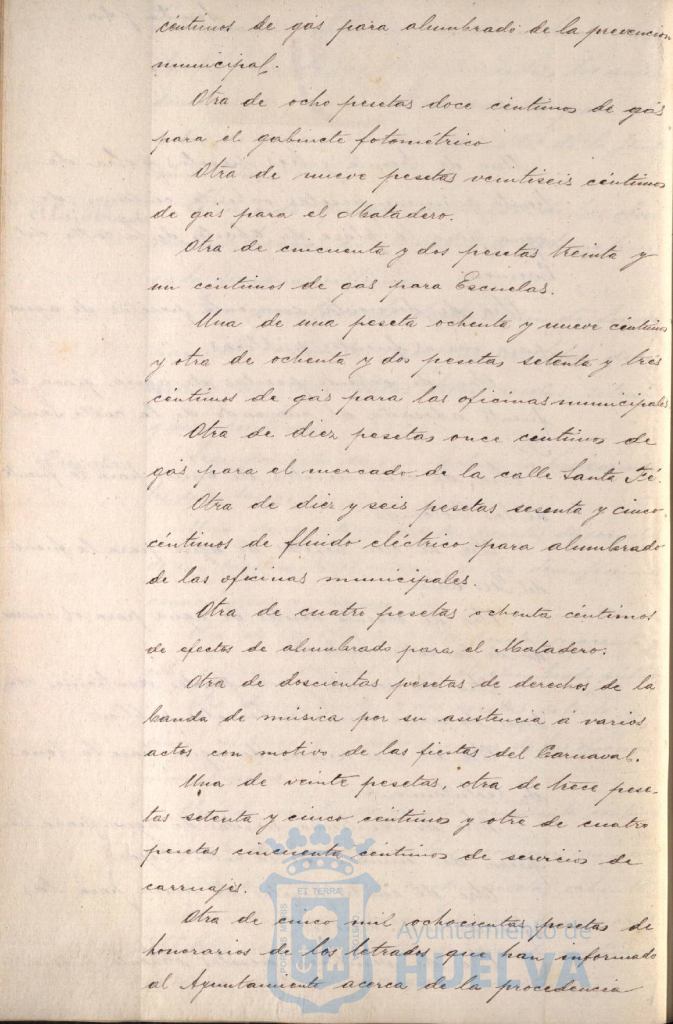 céntimos de gas para alumbrado de la prevencion
municipal.
Otra de ocho pesetas doce céntimos de gás
para el gabinete fotométrico
Otra de nueve pesetas veintiseis céntimos
de gás para el Matadero.
Otra de cincuenta y dos pesetas treinta y
un céntimos de gas para Escuelas.
Una de una peseta ochenta y nueve céntimos
y otra de ochenta y dos pesetas setenta y tres
céntimos de gás para las oficinas municipales
Otra de diez pesetas once céntimos de
gás para el mercado de la calle Santa Fé.
Otra de diez y seis pesetas sesenta y cinco
céntimos de fluido eléctrico para alumbrado
de las oficinas municipales.
Otra de cuatro pesetas ochenta céntimos
de efectos de alumbrado para el Matadero.
Otra de doscientas pesetas de derechos de la
banda de música por su asistencia á varios
actos con motivo de las fiestas del Carnaval.
Una de veinte pesetas, otra de trece pese-
tas setenta y cinco céntimos y otra de cuatro
pesetas cincuenta céntimos de servicios de
carruajes.
Otra de cinco mil ochocientas pesetas de
honorarios de los letrados que han informado
al Ayuntamiento acerca de la procedencia
ET TERRÆ
PORTUS MARIS
CUSTODIA
Ayuntamiento de
HUELVA